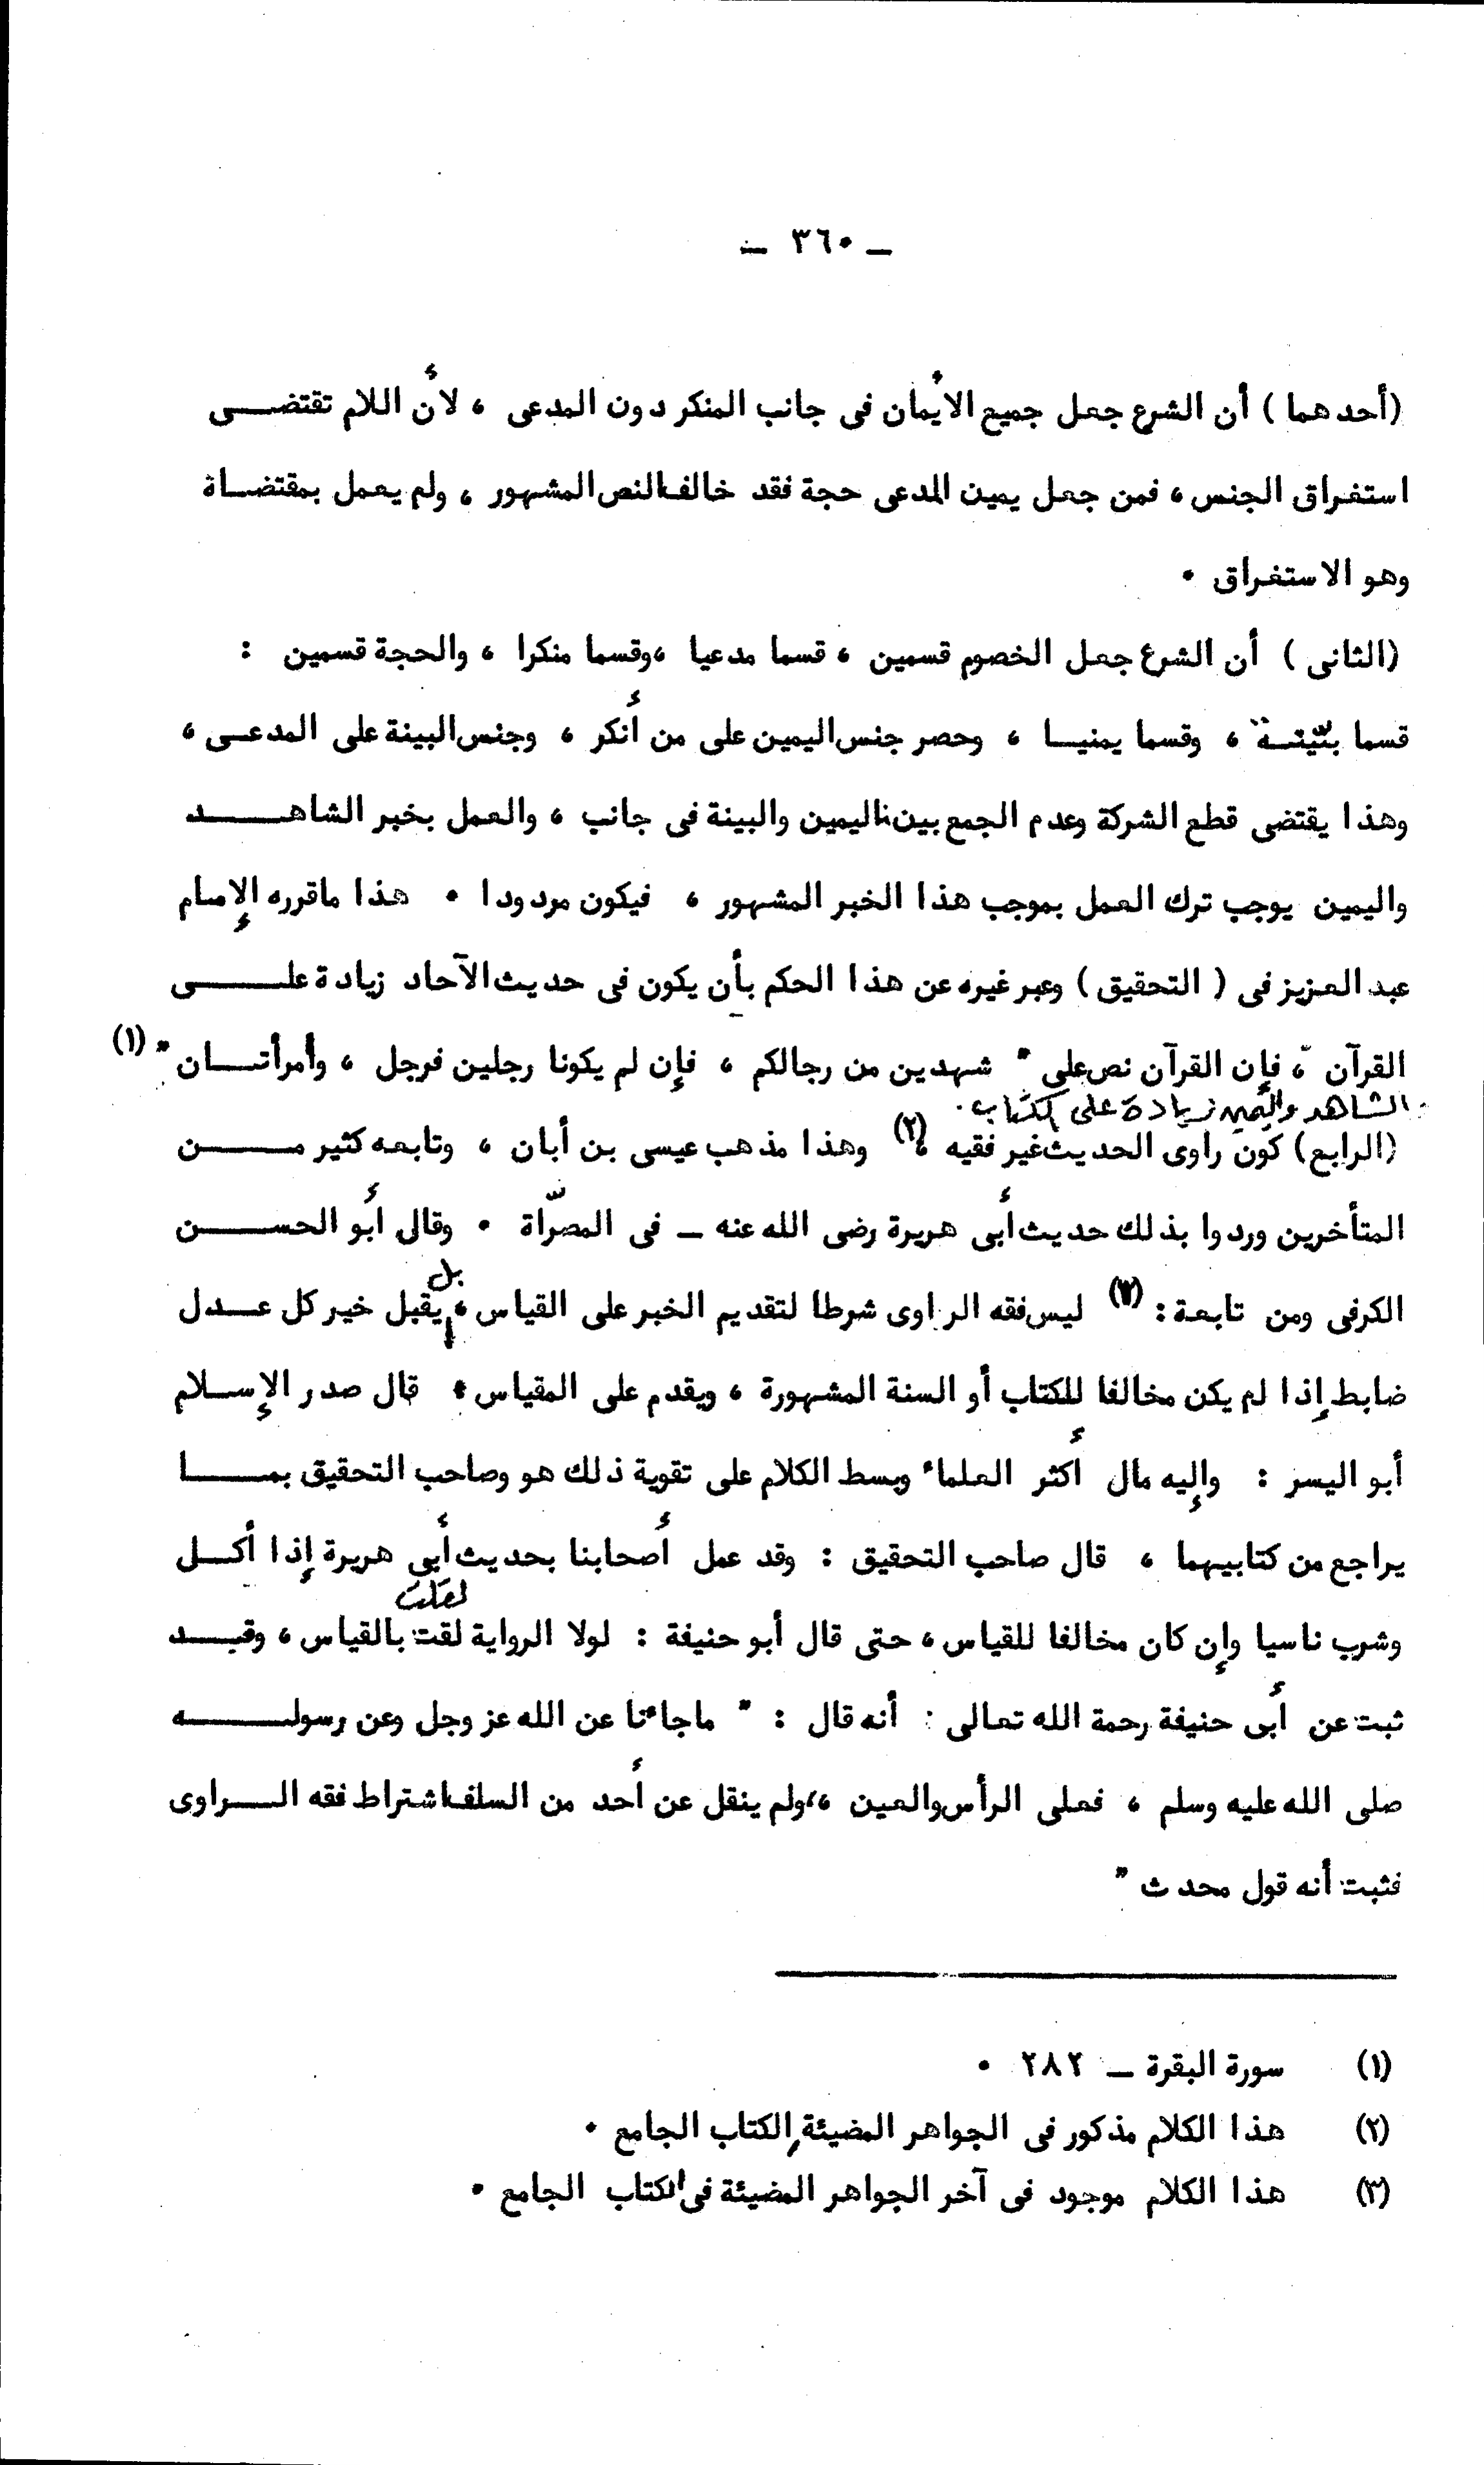 ـ ٣٦٠ ـ
(أحدهما) أن الشرع جعل جميع الأيمان فى جانب المنكر دون المدعى ، لأن اللام تقتضــى
استغراق الجنس ، فمن جعل يمين المدعى حجة فقد خالف النص المشهور ، ولم يعمل بمقتضـاة
وهو الاستغراق .
(الثانى) أن الشرع جعل الخصوم قسمين ، قسما مدعيا ،وقسما منكرا ، والحجة قسمين :
قسما بيّنـة ، وقسما يمنيـا ، وحصر جنس اليمين على من أنكر ، وجنس البينة على المدعـى ،
وهذا يقتضى قطع الشركة وعدم الجمع بين اليمين والبينة فى جانب ، والعمل بخبر الشاهــد
واليمين يوجب ترك العمل بموجب هذا الخبر المشهور ، فيكون مردودا . هذا ماقرره الإمـام
عبد العزيز فى ( التحقيق ) وعبر غيره عن هذا الحكم بأن يكون فى حديث الآحاد زيادة علـــى
القرآن ، فإن القرآن نص على " شهدين من رجالكم ، فإن لم يكونا رجلين فرجل ، وأمرأتــان " (١)
الشاهد واليمين زيادة على الكتاب .
(الرابع) كون راوى الحديث غير فقيه ، (٢) وهذا مذهب عيسى بن أبان ، وتابعه كثير مــن
المتأخرين وردوا بذلك حديث أبى هريرة رضى الله عنه ـ فى المصرّاة . وقال أبو الحســن
الكرفى ومن تابعة : (٣) ليس فقه الراوى شرطا لتقديم الخبر على القياس ، بل يقبل خير كل عــدل
ضابط إذا لم يكن مخالفا للكتاب أو السنة المشهورة ، ويقدم على المقياس . قال صدر الإسـلام
أبو اليسر : وإليه مال أكثر العلماء وبسط الكلام على تقوية ذلك هو وصاحب التحقيق بمــا
يراجع من كتابيهما ، قال صاحب التحقيق : وقد عمل أصحابنا بحديث أبى هريرة إذا أكــل
وشرب ناسيا وإن كان مخالفا للقياس ، حتى قال أبو حنيفة : لولا الرواية لقت لقلت بالقياس ، وقــد
ثبت عن أبى حنيفة رحمة الله تعالى : أنه قال : " ماجاءنا عن الله عز وجل وعن رسولــه
صلى الله عليه وسلم ، فعلى الرأس والعين ،"ولم ينقل عن أحد من السلف اشتراط فقه الــراوى
فثبت أنه قول محدث "
(١) سورة البقرة ـ ٢٨٢ .
(٢) هذا الكلام مذكور فى الجواهر المضيئة الكتاب الجامع .
(٣) هذا الكلام موجود فى آخر الجواهر المضيئة فى الكتاب الجامع .